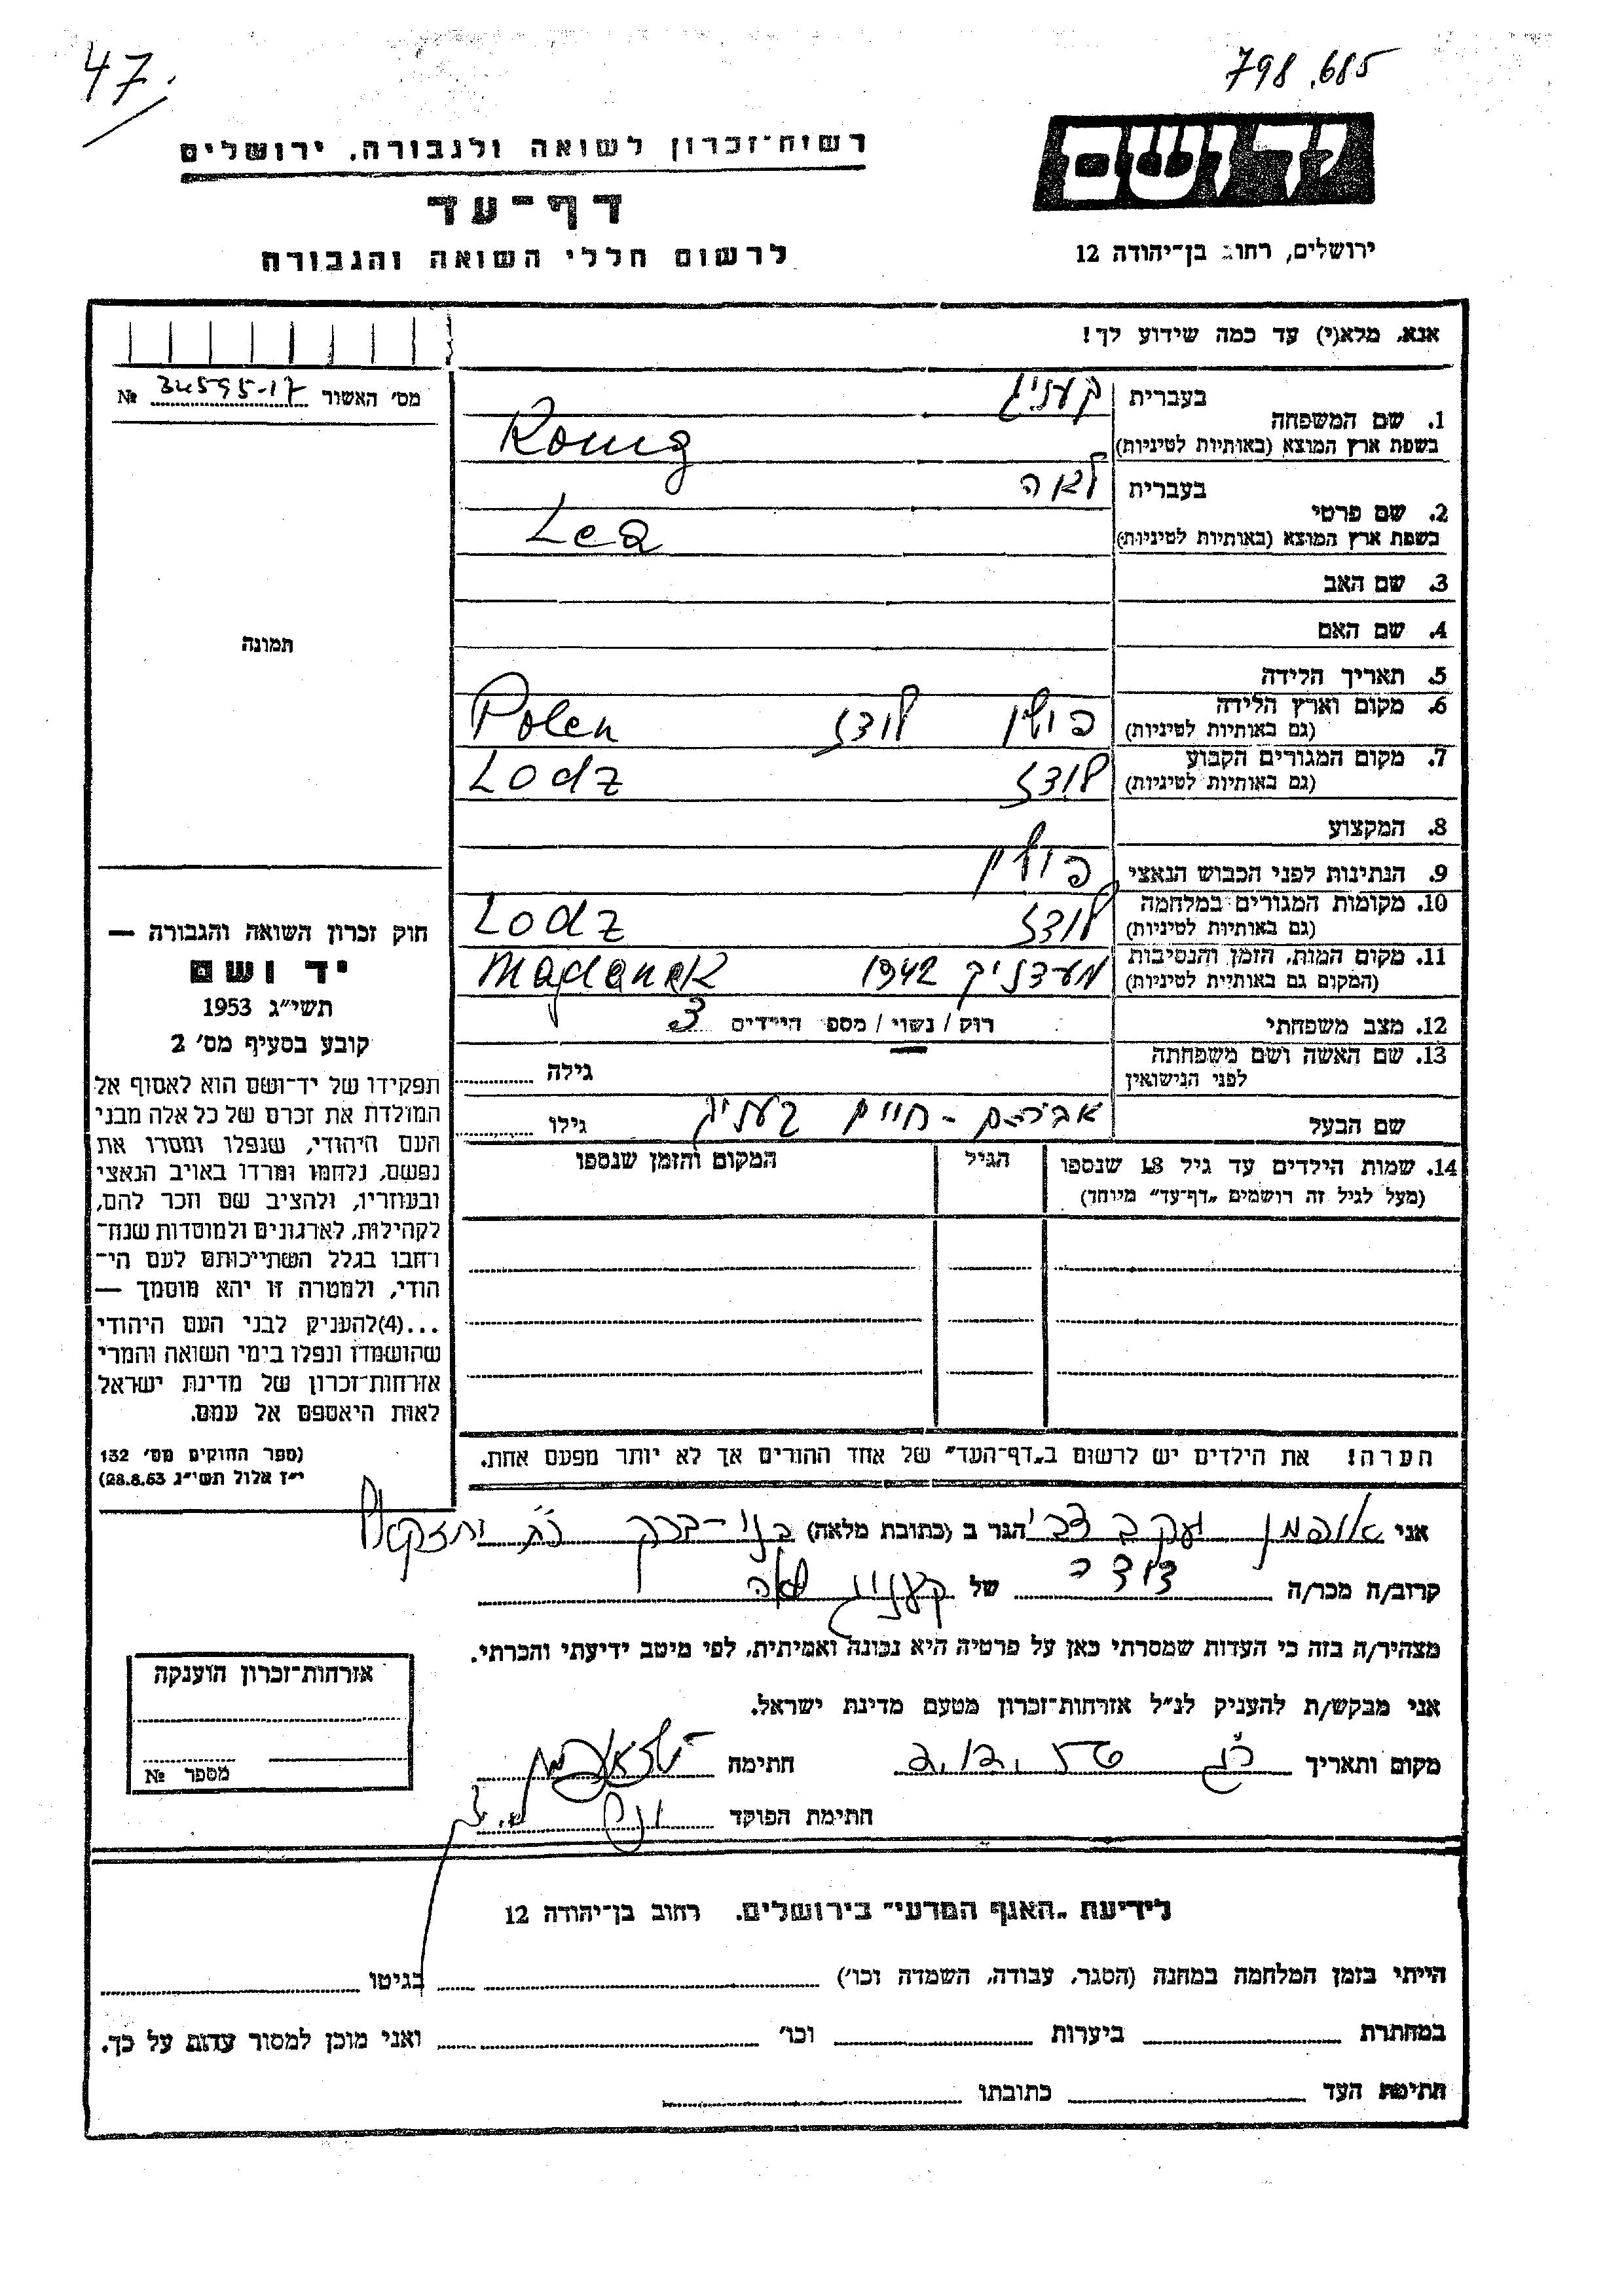 47.
798.685
יד ושם
רשות־זכרון לשואה ולגבורה, ירושלים
דף־עד
לרשום חללי השואה והגבורה
ירושלים, רחוב בן־יהודה 12
אנא, מלא(י) עד כמה שידוע לך!
מס׳ האשור 34595-17 №
תמונה
1. שם המשפחה
בעברית קעניג
בשפת ארץ המוצא (באותיות לטיניות) Konig
2. שם פרטי
בעברית לאה
בשפת ארץ המוצא (באותיות לטיניות) Lea
3. שם האב
4. שם האם
5. תאריך הלידה
6. מקום וארץ הלידה (גם באותיות לטיניות) פולין לודז Polen
7. מקום המגורים הקבוע (גם באותיות לטיניות) לודז Lodz
8. המקצוע
9. הנתינות לפני הכבוש הנאצי פולין
10. מקומות המגורים במלחמה (גם באותיות לטיניות) לודז Lodz
11. מקום המות, הזמן והנסיבות (המקום גם באותיות לטיניות) מעדניק 1942 Madanek
12. מצב משפחתי רוק / נשוי / מספר הילדים 3
13. שם האשה ושם משפחתה לפני הנישואין גילה
שם הבעל אברהם - חיים קעניג גילו
14. שמות הילדים עד גיל 18 שנספו
(מעל לגיל זה רושמים „דף־עד״ מיוחד)
הגיל
המקום והזמן שנספו
הערה! את הילדים יש לרשום ב„דף־העד״ של אחד ההורים אך לא יותר מפעם אחת.
חוק זכרון השואה והגבורה —
יד ושם
תשי״ג 1953
קובע בסעיף מס׳ 2
תפקידו של יד־ושם הוא לאסוף אל
המולדת את זכרם של כל אלה מבני
העם היהודי, שנפלו ומסרו את
נפשם, נלחמו ומרדו באויב הנאצי
ובעוזריו, ולהציב שם וזכר להם,
לקהילות, לארגונים ולמוסדות שנח־
רחבו בגלל השתייכותם לעם הי־
הודי, ולמטרה זו יהא מוסמך —
...(4)להעניק לבני העם היהודי
שהושמדו ונפלו בימי השואה והמרי
אזרחות־זכרון של מדינת ישראל
לאות היאספם אל עמם.
(ספר החוקים מס׳ 132
י״ז אלול תשי״ג 28.8.53)
אני יעקב צבי הגר ב (כתובת מלאה) בני-ברק
קרוב/ה מכר/ה דודה של קעניג לאה
מצהיר/ה בזה כי העדות שמסרתי כאן על פרטיה היא נכונה ואמיתית, לפי מיטב ידיעתי והכרתי.
אני מבקש/ת להעניק לנ״ל אזרחות־זכרון מטעם מדינת ישראל.
מקום ותאריך חתימה
חתימת הפוקד
אזרחות־זכרון הוענקה
מספר №
לידיעת „האגף המדעי״ בירושלים, רחוב בן־יהודה 12
הייתי בזמן המלחמה במחנה (הסגר, עבודה, השמדה וכו׳) בגיטו
במחתרת ביערות וכו׳ ואני מוכן למסור עדות על כך.
חתימת העד כתובתו